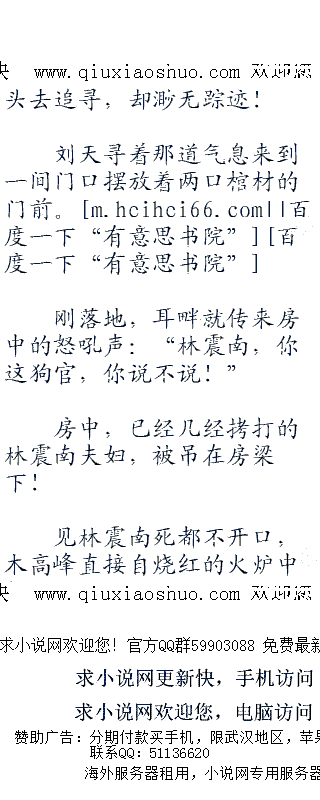 快 www.qiuxiaoshuo.com 欢迎您
头去追寻，却渺无踪迹！
刘天寻着那道气息来到
一间门口摆放着两口棺材的
门前。[m.hcihci66.com||百
度一下“有意思书院”][百
度一下“有意思书院”]
刚落地，耳畔就传来房
中的怒吼声：“林震南，你
这狗官，你说不说！”
房中，已经几经拷打的
林震南夫妇，被吊在房梁
下！
见林震南死都不开口，
木高峰直接自烧红的火炉中
快 www.qiuxiaoshuo.com 欢迎您
求小说网欢迎您！官方QQ群59903088 免费最新
求小说网更新快，手机访问
求小说网欢迎您，电脑访问
赞助广告：分期付款买手机，限武汉地区，苹果
联系QQ：51136620
海外服务器租用，小说网专用服务器